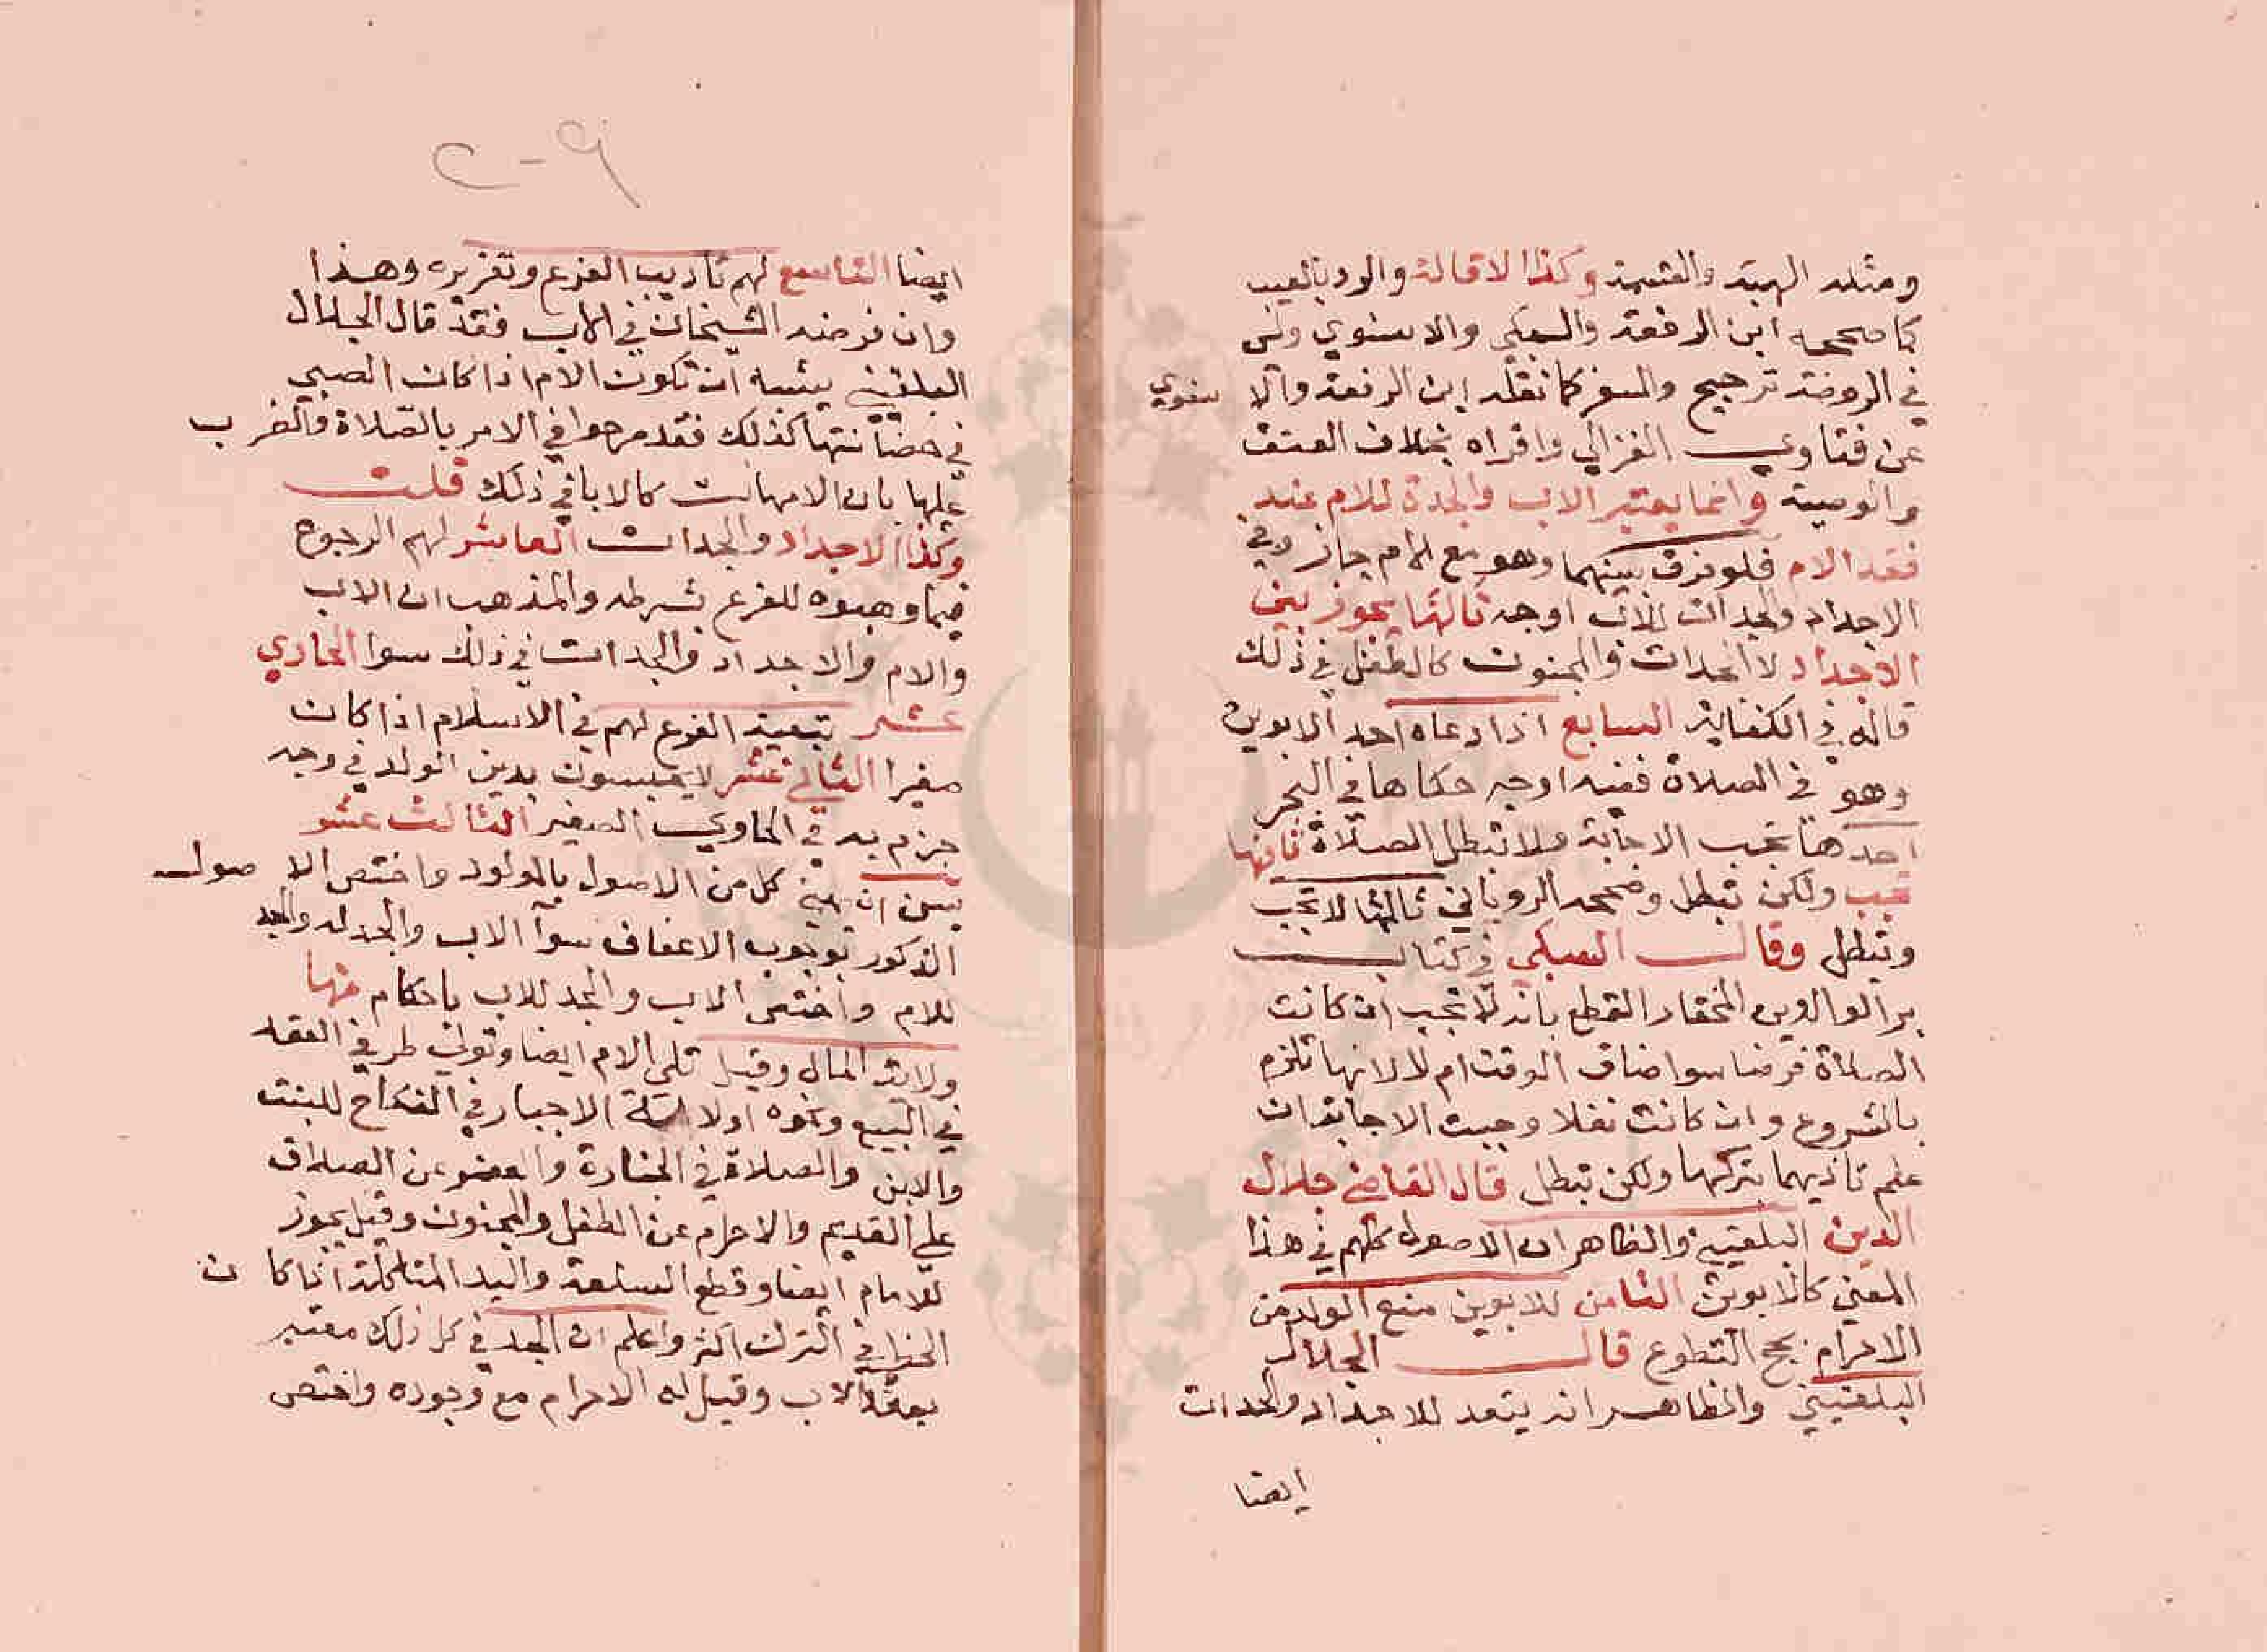 ومثله الهبة والقسمة وكذا الاقالة والرد بالعيب
كما صححه ابن الرفعة والسبكي والاسنوي وليس
في الروضة ترجيح والسفر كما نقله ابن الرفعة والاسنوي
عن فتاوي الغزالي واقراه بخلاف العتق
والوصية وانما يعتبر الاب والجدة للام عند
فقد الام فلو فرق بينهما وهو مع الام جاز وفي
الاجداد والجدات للاب اوجه ثالثها يجوز بين
الاجداد لا الجدات والمجنون كالطفل في ذلك
قاله في الكفاية السابع اذا دعاه احد الابوين
وهو في الصلاة ففيه اوجه حكاها في البحر
احدها تجب الاجابة ولا تبطل الصلاة ثانيها
تجب ولكن تبطل وصححه الروياني ثالثها لا تجب
وتبطل وقال السبكي في كتاب
بر الوالدين المختار القطع بانه لا تجب ان كانت
الصلاة فرضا سوا ضاق الوقت ام لا لانها تلزم
بالشروع وان كانت نفلا وجبت الاجابة ان
علم تاذيهما بتركها ولكن تبطل قال القاضي جلال
الدين البلقيني والظاهر ان الاصول كلهم في هذا
المعني كالابوين الثامن للابوين منع الولد من
الاحرام بحج التطوع قال الجلال
البلقيني والظاهر انه يتعد للاجداد والجدات
ايضا
٢٠٩
ايضا التاسع لهم تاديب الفرع وتعزيره وهذا
وان فرضه الشيخان في الاب فقد قال الجلال
البلقيني يشبه ان تكون الام اذا كان الصبي
في حضانتها كذلك فقد صرحوا في الامر بالصلاة والضرب
عليها بان الامهات كالابا في ذلك قلت
وكذا الاجداد والجدات العاشر لهم الرجوع
فيما وهبوه للفرع بشرطه والمذهب ان الاب
والام والاجداد والجدات في ذلك سوا الحادي
عشر تبعية الفرع لهم في الاسلام اذا كان
صغيرا الثاني عشر لا يحبسون بدين الولد في وجه
جزم به في الحاوي الصغير الثالث عشر
يسن ان يهني كل من الاصول بالمولود واختص الاصول
الذكور بوجوب الاعفاف سوآ الاب والجد له والجد
للام واختص الاب والجد للاب باحكام منها
ولاية المال وقيل تلي الام ايضا وتولي طرفي العقد
في البيع ونحوه اولاية الاجبار في النكاح للبنت
والابن والصلاة في الجنازة والعفو عن الصداق
علي القديم والاحرام عن الطفل والمجنون وقيل يجوز
للامام ايضا وقطع السلعة واليد المتاكلة اذا كان
الخطر في الترك اكثر واعلم ان الجد في كل ذلك معتبر
بفقد الاب وقيل له الاحرام مع وجوده واختص